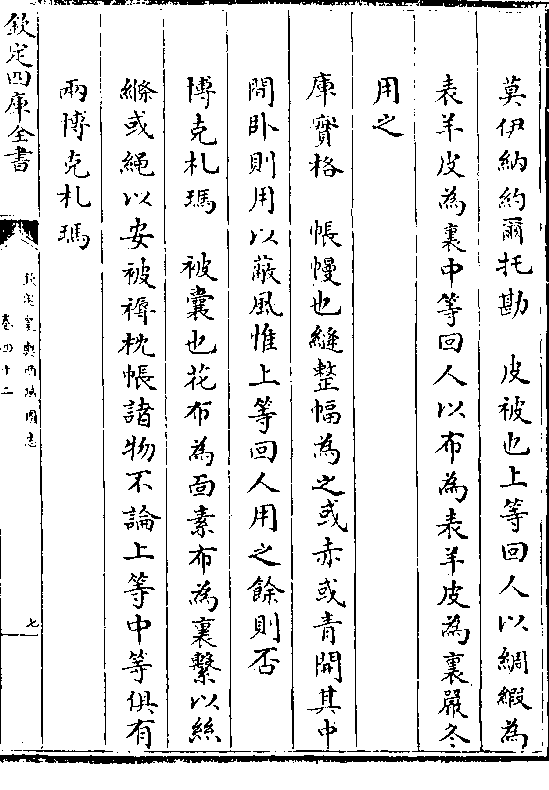 莫伊納約爾托勘　皮被也上等回人以綢緞為
表羊皮為裏中等回人以布為表羊皮為裏嚴冬
用之
庫實格　帳幔也縫整幅為之或赤或青開其中
間卧則用以蔽風惟上等回人用之餘則否
博克札瑪　被囊也花布為面素布為裏繫以絲
絛或繩以安被褥枕帳諸物不論上等中等俱有
兩博克札瑪
欽定四庫全書
欽定皇輿西域圖志
卷四十二
七